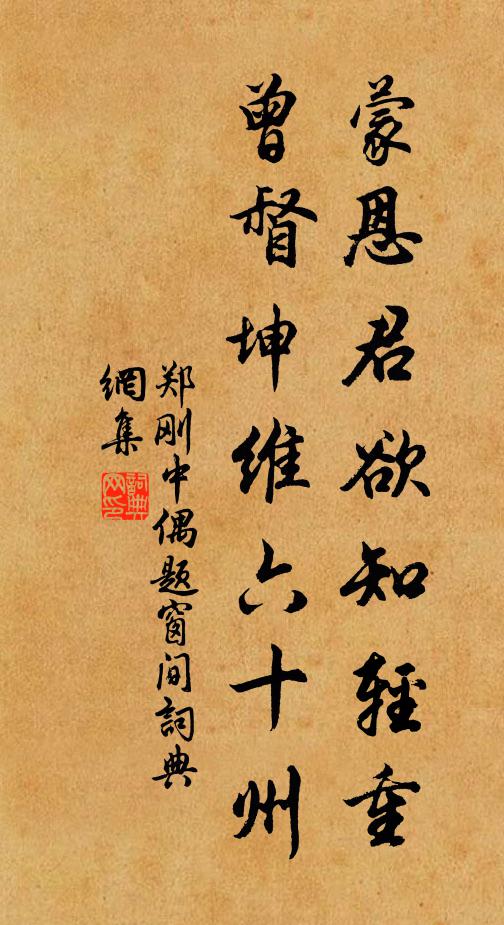 蒙恩君欲知輕重
曾督坤維六十州
郑刚中偶题窗间詞典
網集
詞典
网印